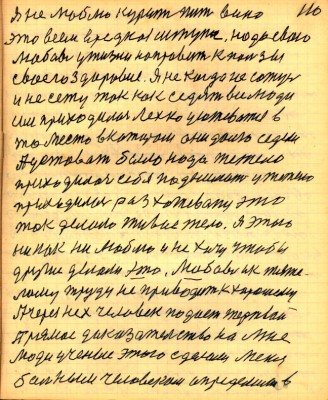 110
Я не люблю курить пить вино
это всем вредная штука, надо свою
любовь у жизни направить к пользы
своего здоровия. Я не когда не сотую
и не сету так как седят все люди
им приходилося легко уютов в
то место в котором они долго седели
А уставать было нода тежело
приходилося себя подымать утежено
приходилося расхотевату это
так делать живае тело. Я этого
ни как ни люблю и не хочу чтобы
другие делали это. Любовь ик тяже-
лому труду не приводит к хорошему
А через них человекподает мертвой
Прямое доказательство на мне
люди ученые этого сделали меня
больным человеком определили в